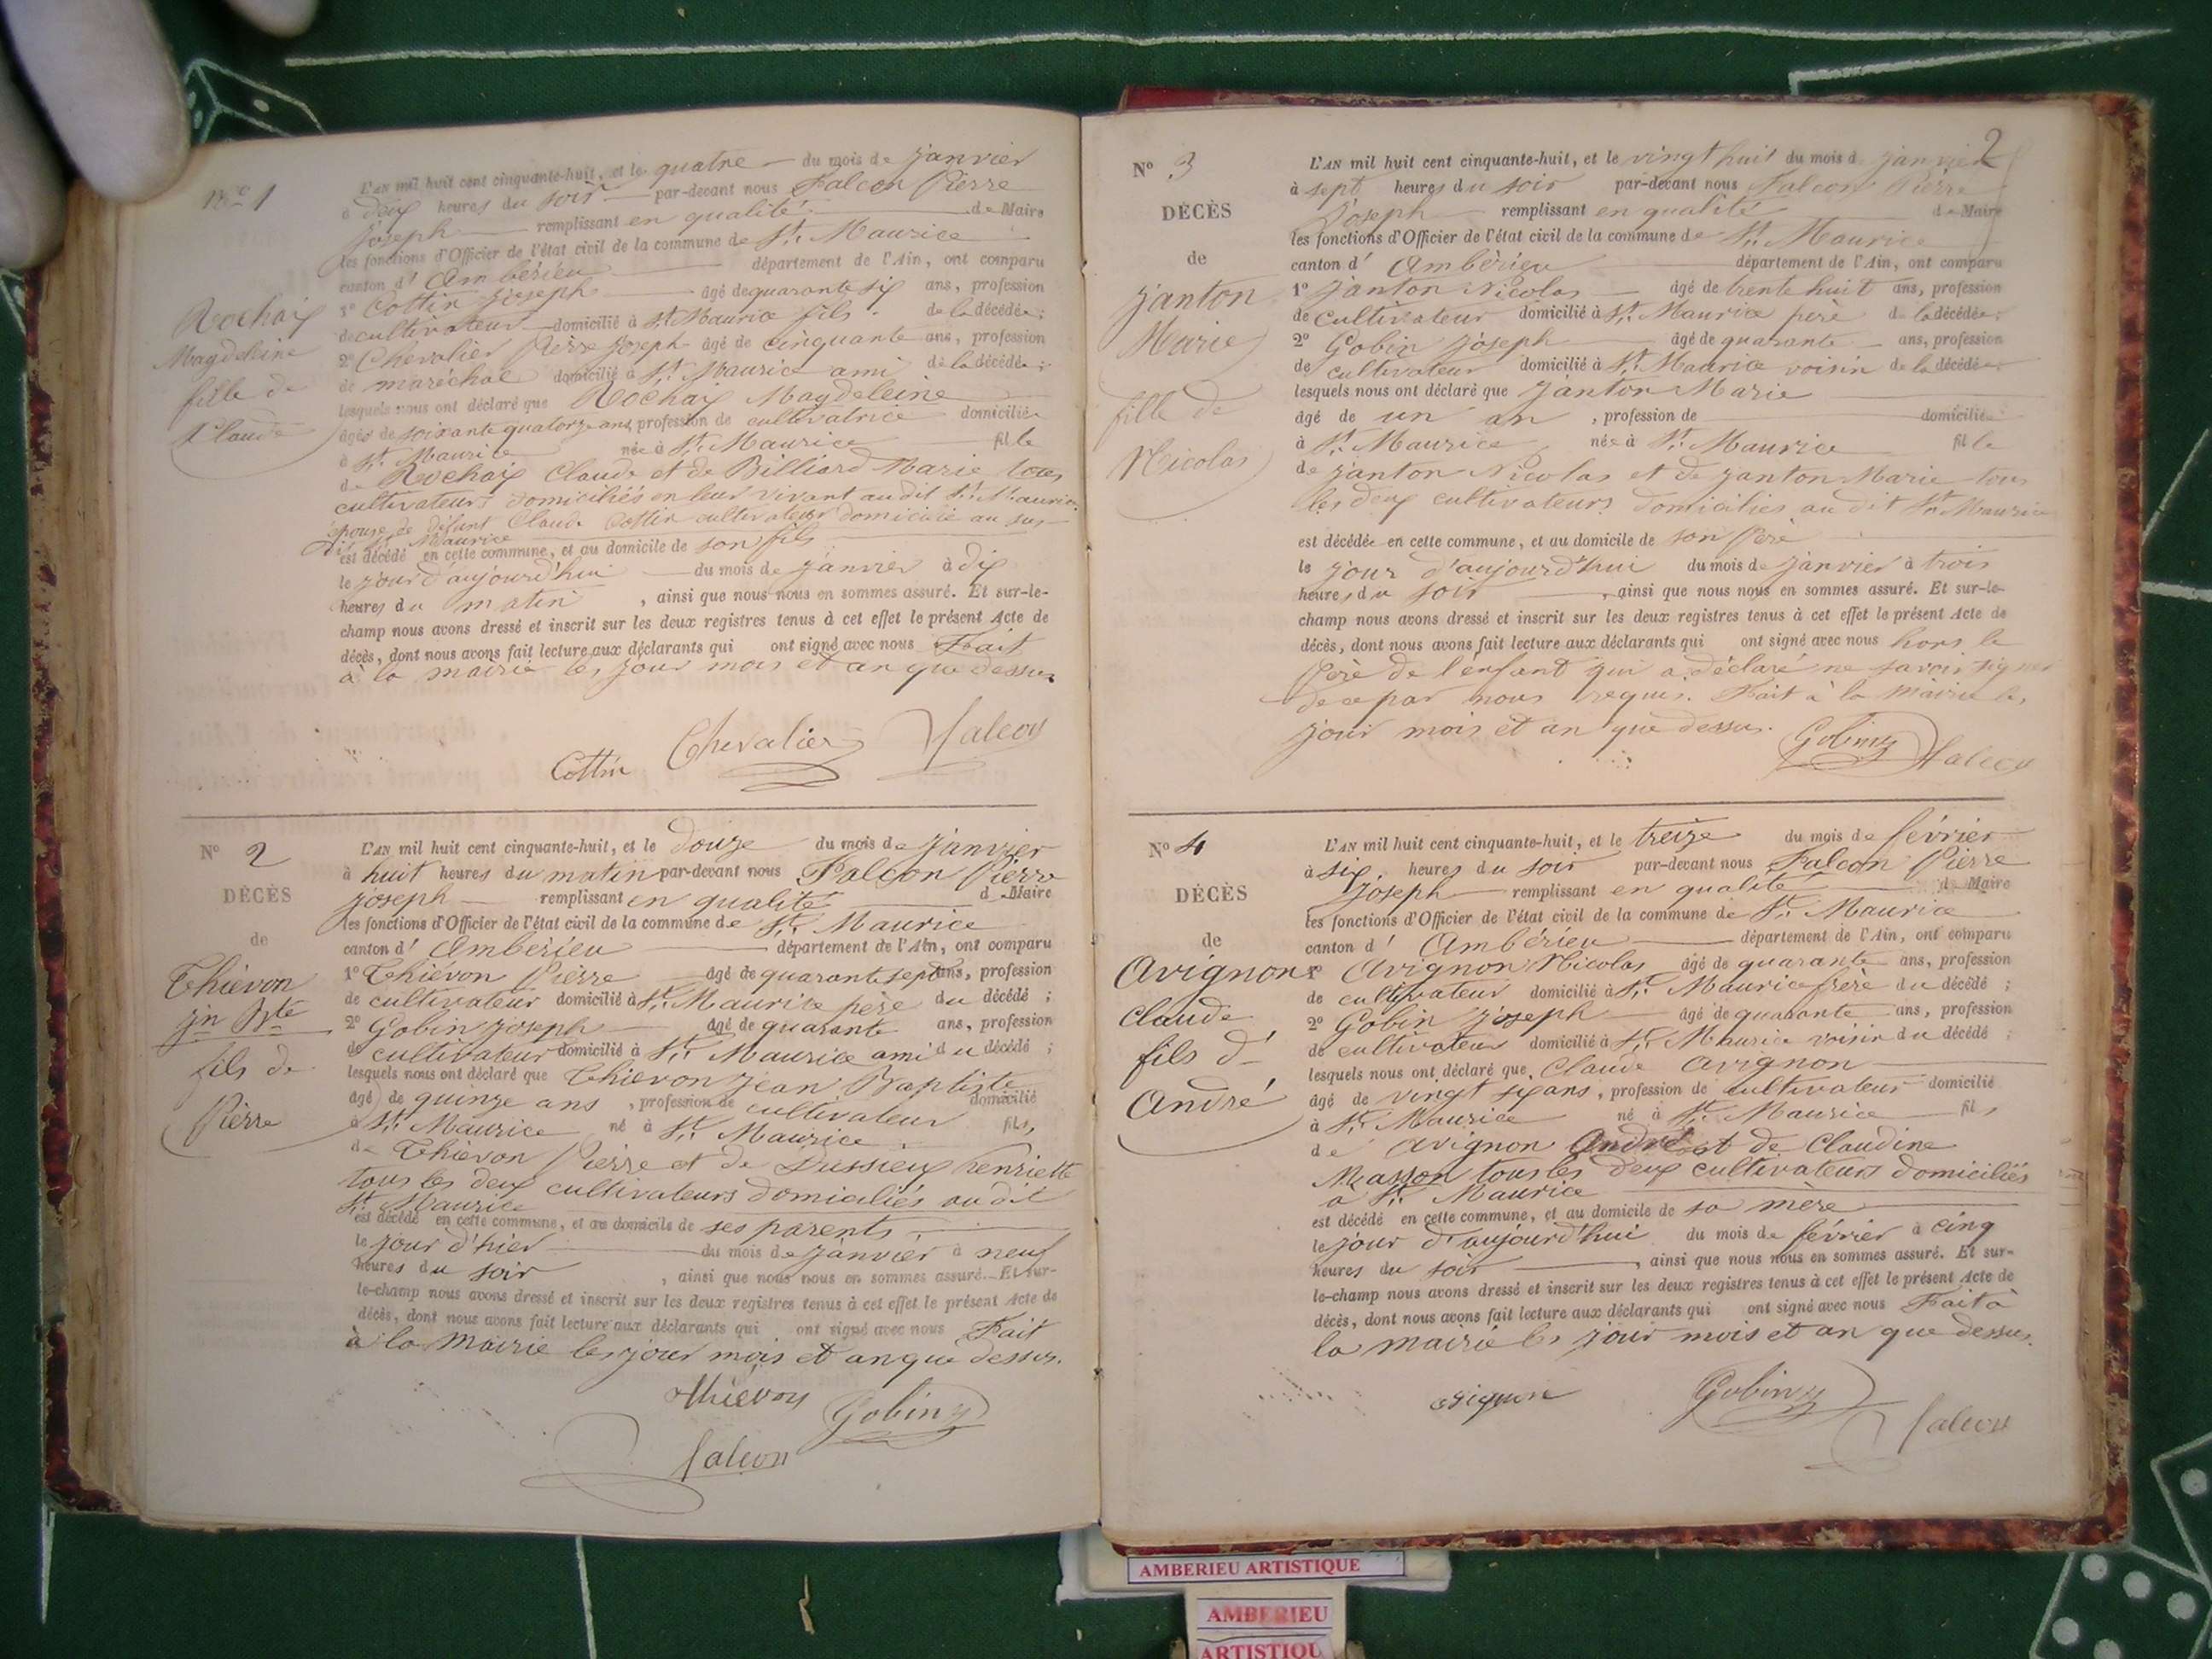 No 1
Rochaix
Magdeleine
fille de
Claude
L'AN mil huit cent cinquante-huit, et le quatre du mois de janvier
à deux heures du soir par-devant nous Falcon Pierre
joseph remplissant en qualité de Maire
les fonctions d'Officier de l'état civil de la commune de St. Maurice
canton d'Ambérieu département de l'Ain, ont comparu
1º Cottin joseph âgé de quarante six ans, profession
de cultivateur domicilié à St. Maurice fils de la décédée;
2º Chevalier Pierre joseph âgé de cinquante ans, profession
de maréchal domicilié à St. Maurice ami de la décédée;
lesquels nous ont déclaré que Rochaix Magdeleine
âgée de soixante quatorze ans, profession de cultivatrice domiciliée
à St. Maurice née à St. Maurice fille
de Rochaix Claude et de Billiard Marie tous
cultivateurs domiciliés en leur vivant audit St. Maurice
épouse de défunt Claude Cottin cultivateur domicilié au sus-
dit St. Maurice
est décédé en cette commune, et au domicile de son fils
le jour d'aujourd'hui du mois de janvier à dix
heures du matin, ainsi que nous nous en sommes assuré. Et sur-le-
champ nous avons dressé et inscrit sur les deux registres tenus à cet effet le présent Acte de
décès, dont nous avons fait lecture aux déclarants qui ont signé avec nous Fait
à la mairie les jour mois et an que dessus
Cottin Chevalier Falcon
No 2
DÉCÈS
de
Thievon
jn Bte
fils de
Pierre
L'AN mil huit cent cinquante-huit, et le douze du mois de janvier
à huit heures du matin par-devant nous Falcon Pierre
joseph remplissant en qualité d Maire
les fonctions d'Officier de l'état civil de la commune de St. Maurice
canton d'Ambérieu département de l'Ain, ont comparu
1º Thievon Pierre âgé de quarante sept ans, profession
de cultivateur domicilié à St. Maurice père du décédé;
2º Gobin joseph âgé de quarante ans, profession
de cultivateur domicilié à St. Maurice ami du décédé;
lesquels nous ont déclaré que Thievon jean Baptiste
âgé de quinze ans, profession de cultivateur domicilié
à St. Maurice né à St. Maurice fils
de Thievon Pierre et de Dussieux henriette
tous les deux cultivateurs domiciliés audit
St. Maurice
est décédé en cette commune, et au domicile de ses parents
le jour d'hier du mois de janvier à neuf
heures du soir, ainsi que nous nous en sommes assuré. Et sur-
le-champ nous avons dressé et inscrit sur les deux registres tenus à cet effet le présent Acte de
décès, dont nous avons fait lecture aux déclarants qui ont signé avec nous Fait
à la Mairie les jour mois et an que dessus.
thievon Gobin
falcon
2
No 3
DÉCÈS
de
janton
Marie
fille de
Nicolas
L'AN mil huit cent cinquante-huit, et le vingt huit du mois d janvier
à sept heures du soir par-devant nous Falcon Pierre
Joseph remplissant en qualité de Maire
les fonctions d'Officier de l'état civil de la commune de St. Maurice
canton d'Ambérieu département de l'Ain, ont comparu
1º janton Nicolas âgé de trente huit ans, profession
de cultivateur domicilié à St. Maurice père de la décédée;
2º Gobin joseph âgé de quarante ans, profession
de cultivateur domicilié à St. Maurice voisin de la décédée
lesquels nous ont déclaré que janton Marie
âgé de un an, profession de domiciliée
à St. Maurice, née à St. Maurice fille
de janton Nicolas et de janton Marie tous
les deux cultivateurs domiciliés au dit St. Maurice
est décédée en cette commune, et au domicile de son Père
le jour d'aujourd'hui du mois de janvier à trois
heures du soir, ainsi que nous nous en sommes assuré. Et sur-le-
champ nous avons dressé et inscrit sur les deux registres tenus à cet effet le présent Acte de
décès, dont nous avons fait lecture aux déclarants qui ont signé avec nous hors le
Père de l'enfant qui a déclaré ne savoir signer
de ce par nous requis. Fait à la Mairie les
jour mois et an que dessus. Gobin Falcon
No 4
DÉCÈS
de
Avignon
Claude
fils d'
André
L'AN mil huit cent cinquante-huit, et le treize du mois de février
à six heures du soir par-devant nous Falcon Pierre
Joseph remplissant en qualité d Maire
les fonctions d'Officier de l'état civil de la commune de St. Maurice
canton d'Ambérieu département de l'Ain, ont comparu
1º Avignon Nicolas âgé de quarante ans, profession
de cultivateur domicilié à St. Maurice frère du décédé;
2º Gobin joseph âgé de quarante ans, profession
de cultivateur domicilié à St. Maurice voisin du décédé;
lesquels nous ont déclaré que Claude avignon
âgé de vingt six ans, profession de cultivateur domicilié
à St. Maurice né à St. Maurice fils
de avignon André et de Claudine
Masson tous les deux cultivateurs domiciliés
à St. Maurice
est décédé en cette commune, et au domicile de sa mère
le jour d'aujourd'hui du mois de février à cinq
heures du soir, ainsi que nous nous en sommes assuré. Et sur-
le-champ nous avons dressé et inscrit sur les deux registres tenus à cet effet le présent Acte de
décès, dont nous avons fait lecture aux déclarants qui ont signé avec nous Fait à
la mairie les jour mois et an que dessus.
Gobin
falcon
AMBERIEU ARTISTIQUE
AMBERIEU
ARTISTIQU